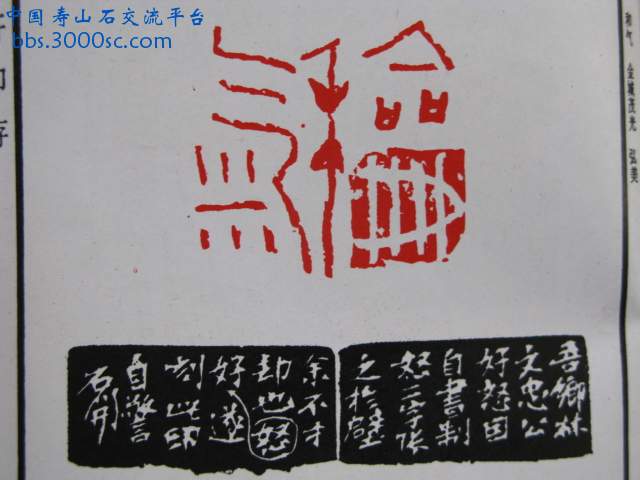 中国寿山石交流平台
bbs.3000sc.com
吾鄉林
文忠公
好怒因
自書制
怒二字張
之於壁
余不才
却也怒
好遂
刻此印
自警
石開